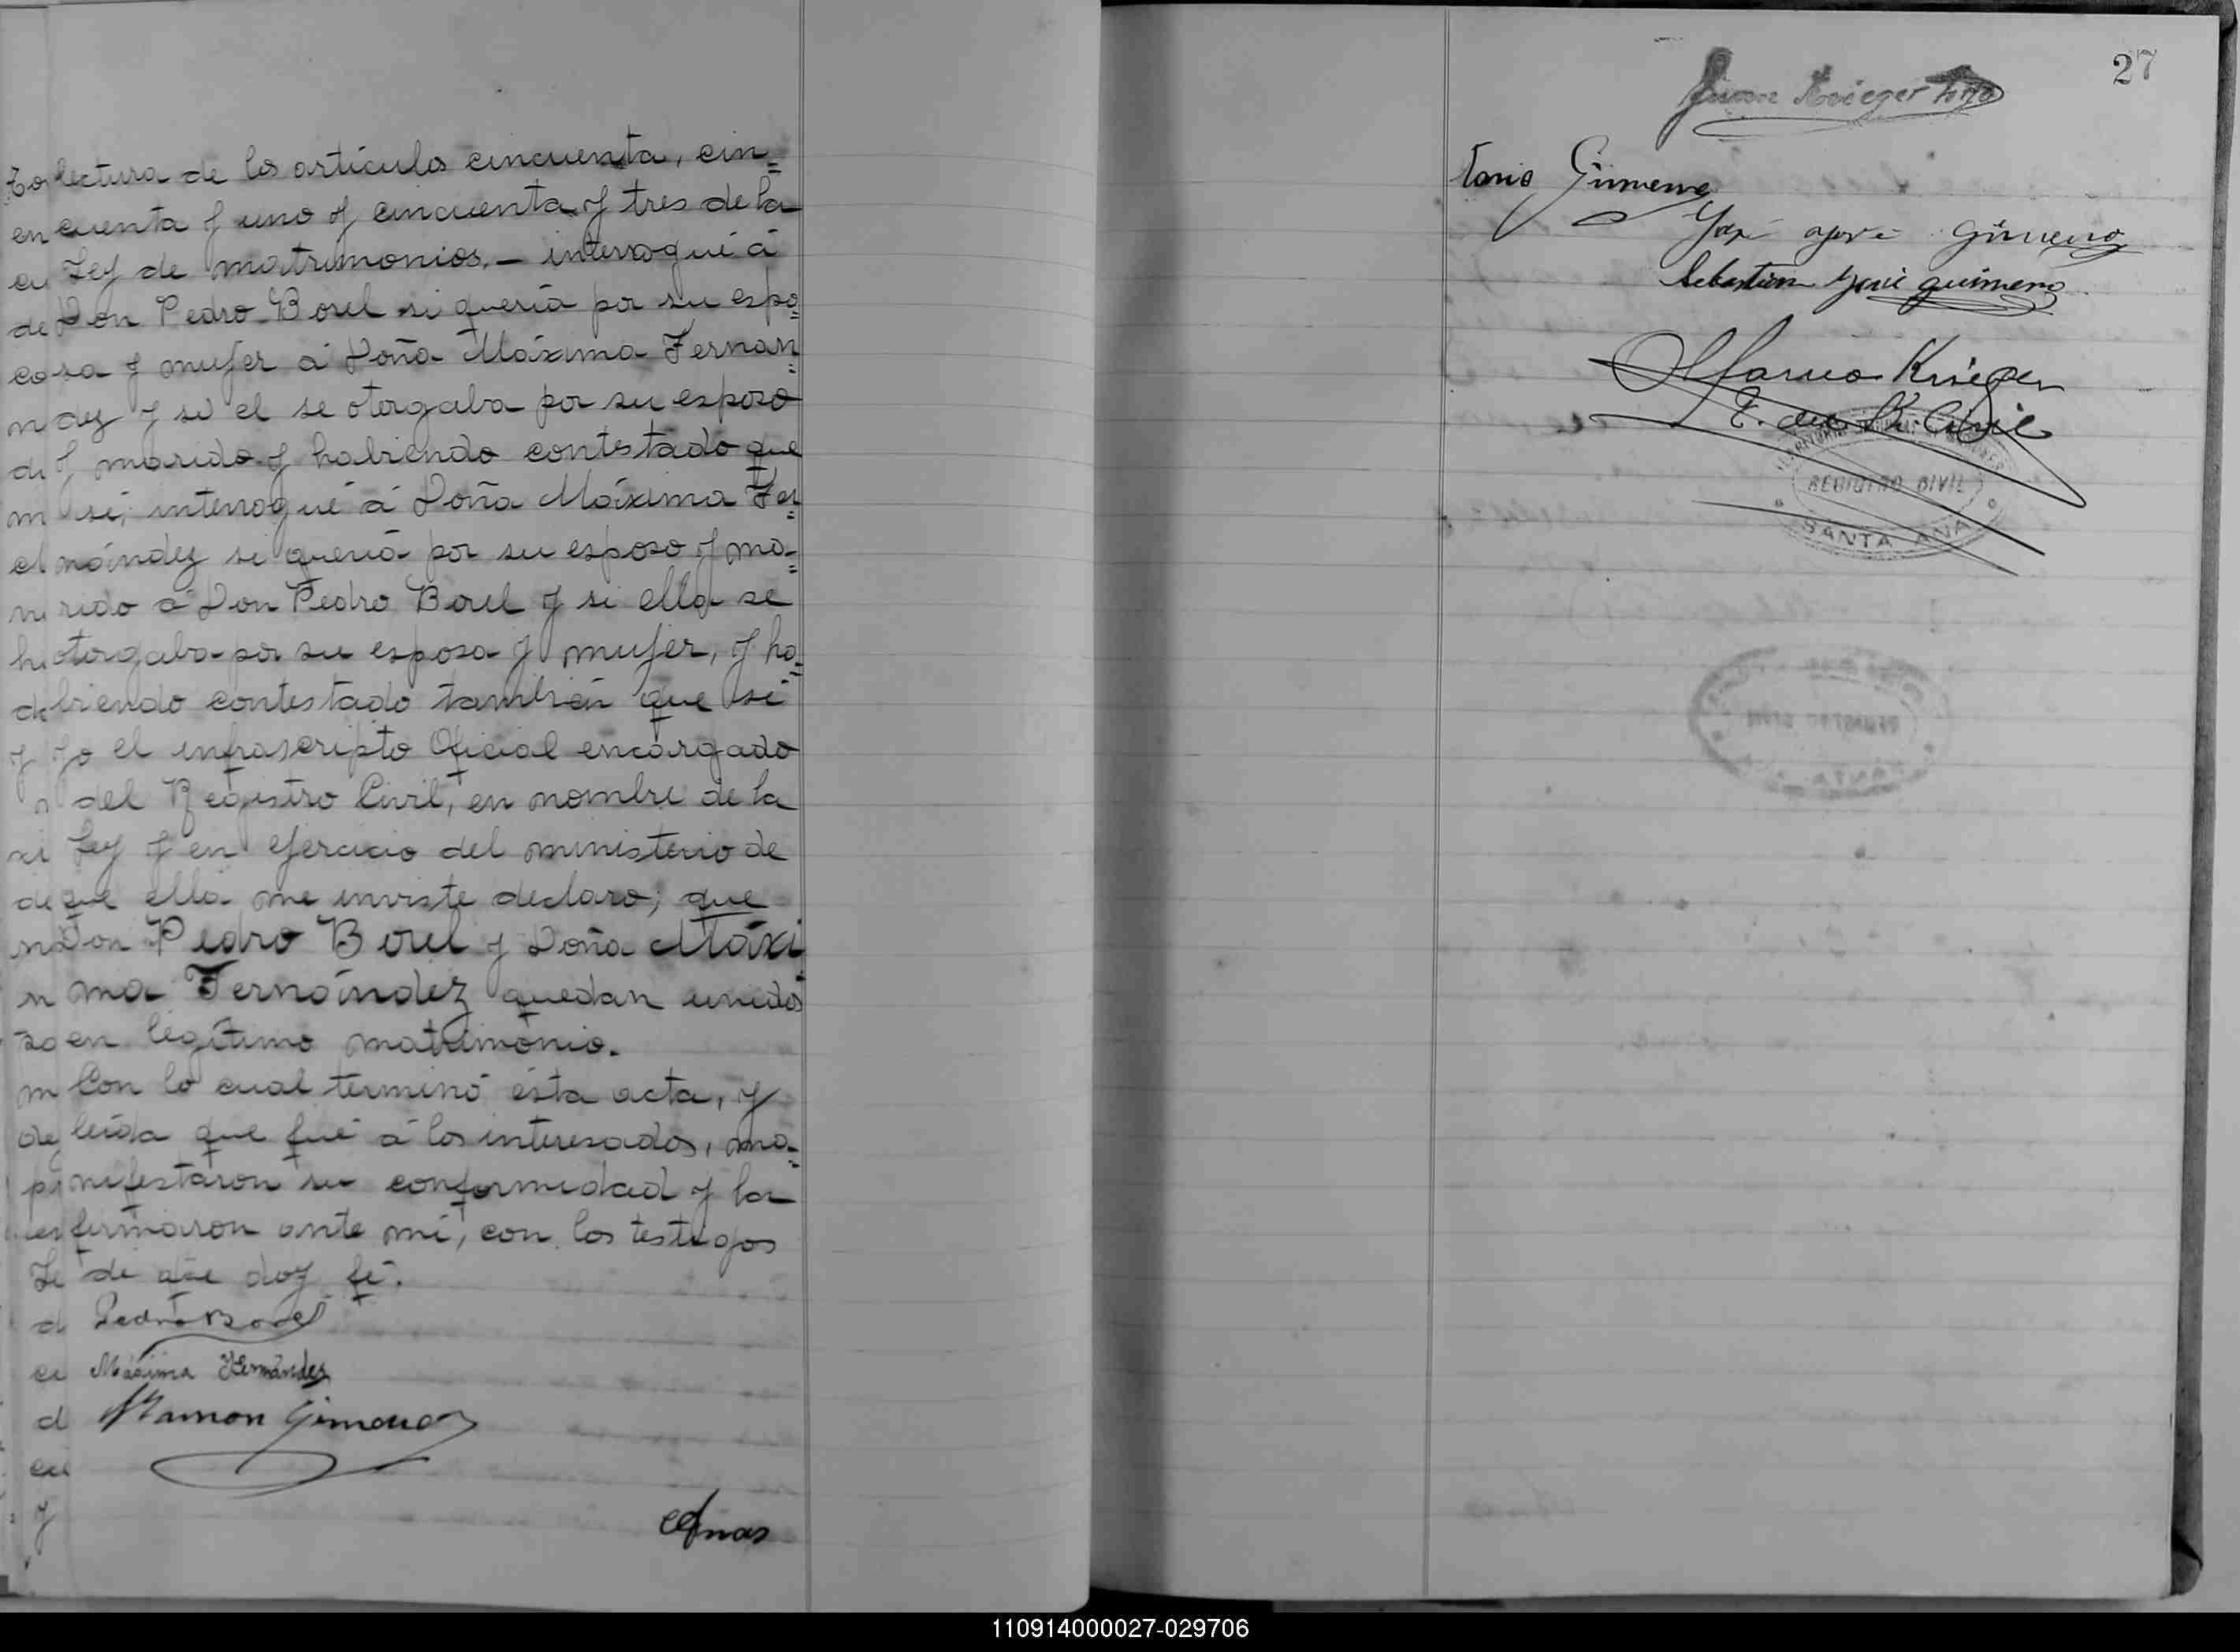 lectura de los artículos cincuenta, cin=
cuenta y uno y cincuenta y tres de la
Ley de matrimonios, — interrogué á
Don Pedro Borel si quería por su espo=
sa y mujer á Doña Máxima Fernan=
dez y si el se otorgaba por su esposo
y marido y habiendo contestado que
si, interrogué á Doña Máxima Fer=
nández si quería por su esposo y ma=
rido á Don Pedro Borel y si ella se
otorgaba por su esposa y mujer, y ha=
biendo contestado también que sí
yo el infrascripto Oficial encargado
del Registro Civil, en nombre de la
Ley y en ejercicio del ministerio de
que ella me inviste declaro; que
Don Pedro Borel y Doña Máxi=
ma Fernández quedan unidos
en legítimo matrimonio.
Con lo cual terminó ésta acta, y
leída que fué á los interesados, ma=
nifestaron su conformidad y la
firmaron ante mí, con los testigos
de que doy fé.
Pedro Borel
Máxima Fernández
Ramon Gimenez
27
Juan Krieger
Gimene
José Gimeno
Sebastian José guimeno
Krieger
E. del R. Civil
REGISTRO CIVIL
SANTA ANA
110914000027-029706